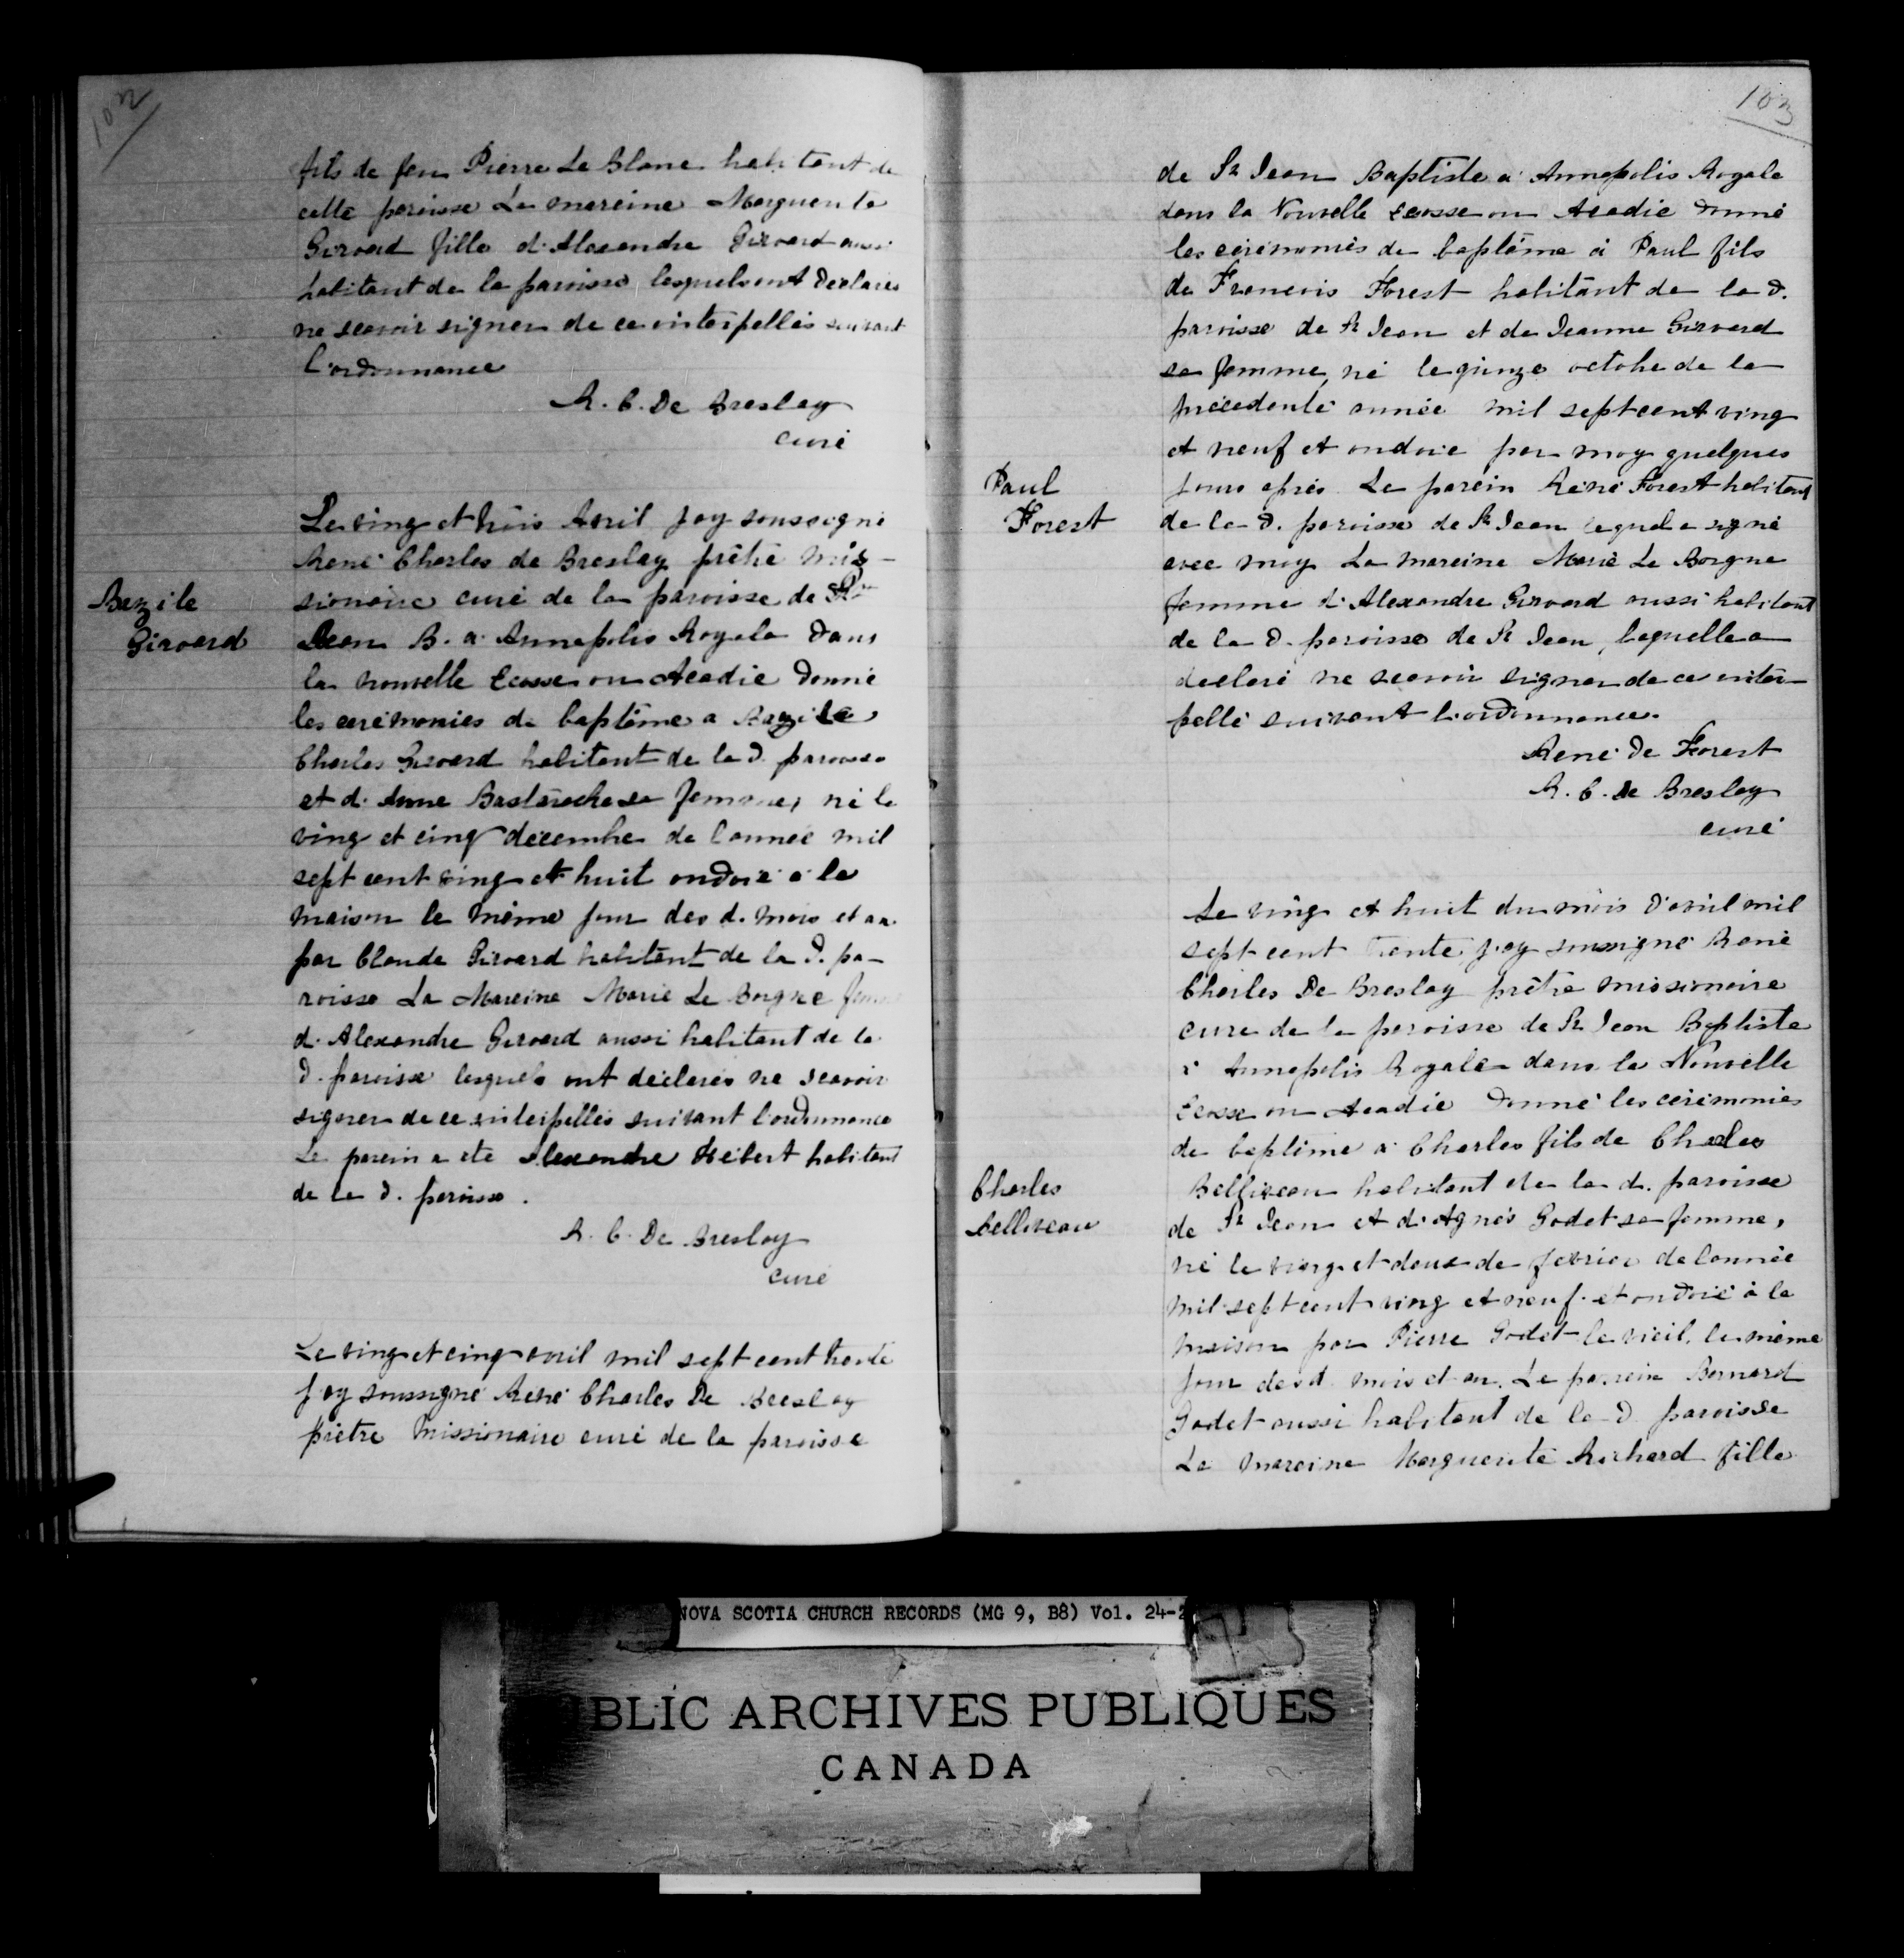 102
fils de feu Pierre Le Blanc habitant de
cette paroisse La mareine Marguerite
Girouard fille d'Alexandre Girouard aussi
habitant de la paroisse lesquels ont declarés
ne scavoir signer de ce interpellés suivant
l'ordonnance
R. C. De Breslay
curé
Le ving et trois Avril j'ay soussigné
René Charles de Breslay prêtre mis-
sionaire curé de la paroisse de St
Bazile
Girouard
Jean B. a Annapolis Royale dans
la nouvelle Ecosse ou Acadie donné
les cerémonies de baptême a Bazile
Charles Girouard habitant de la d. paroisse
et d'Anne Bastaroche sa femme, né le
ving et cinq décembre de l'année mil
sept cent ving et huit ondoié à la
maison le même jour des d. mois et an
par Claude Girouard habitant de la d. pa-
roisse La Mareine Marie Le Borgne
d'Alexandre Girouard aussi habitant de la
d. paroisse lesquels ont déclarés ne scavoir
signer de ce interpellés suivant l'ordonnance
Le parein a été Alexandre Hébert habitant
de la d. paroisse.
R. C. De Breslay
curé
Le ving et cinq avril mil sept cent trente
j'ay soussigné René Charles De Breslay
prêtre missionaire curé de la paroisse
103
de St Jean Baptiste a Annapolis Royale
dans la Nouvelle Ecosse ou Acadie donné
les cérémonies de baptême à Paul fils
de Francois Forest habitant de la d.
paroisse de St Jean et de Jeanne Girouard
sa femme, né le quinze octobre de la
précédente année mil sept cent ving
et neuf et ondoié par moy quelques
Paul
Forest
jours après Le parein René Forest habitant
de la d. paroisse de St Jean lequel a signé
avec moy La mareine Marie Le Borgne
femme d'Alexandre Girouard aussi habitant
de la d. paroisse de St Jean, laquelle a
déclaré ne scavoir signer de ce inter-
pellé suivant l'ordonnance.
René De Forest
R. C. De Breslay
curé
Le ving et huit du mois d'avril mil
sept cent trente, j'ay soussigné René
Charles De Breslay prêtre missionaire
curé de la paroisse de St Jean Baptiste
à Annapolis Royale dans la Nouvelle
Ecosse ou Acadie donné les cérémonies
de baptême à Charles fils de Charles
Charles
Belliveau
Belliveau habitant de la d. paroisse
de St Jean et d'Agnés Godet sa femme,
né le ving et deux de fevrier de l'année
mil sept cent ving et neuf et ondoié à la
maison par Pierre Godet le vieil, le même
jour des d. mois et an. Le parrein Bernard
Godet aussi habitant de la d. paroisse
La mareine Marguerite Richard fille
NOVA SCOTIA CHURCH RECORDS (MG 9, B8) Vol. 24-2
BLIC ARCHIVES PUBLIQUES
CANADA